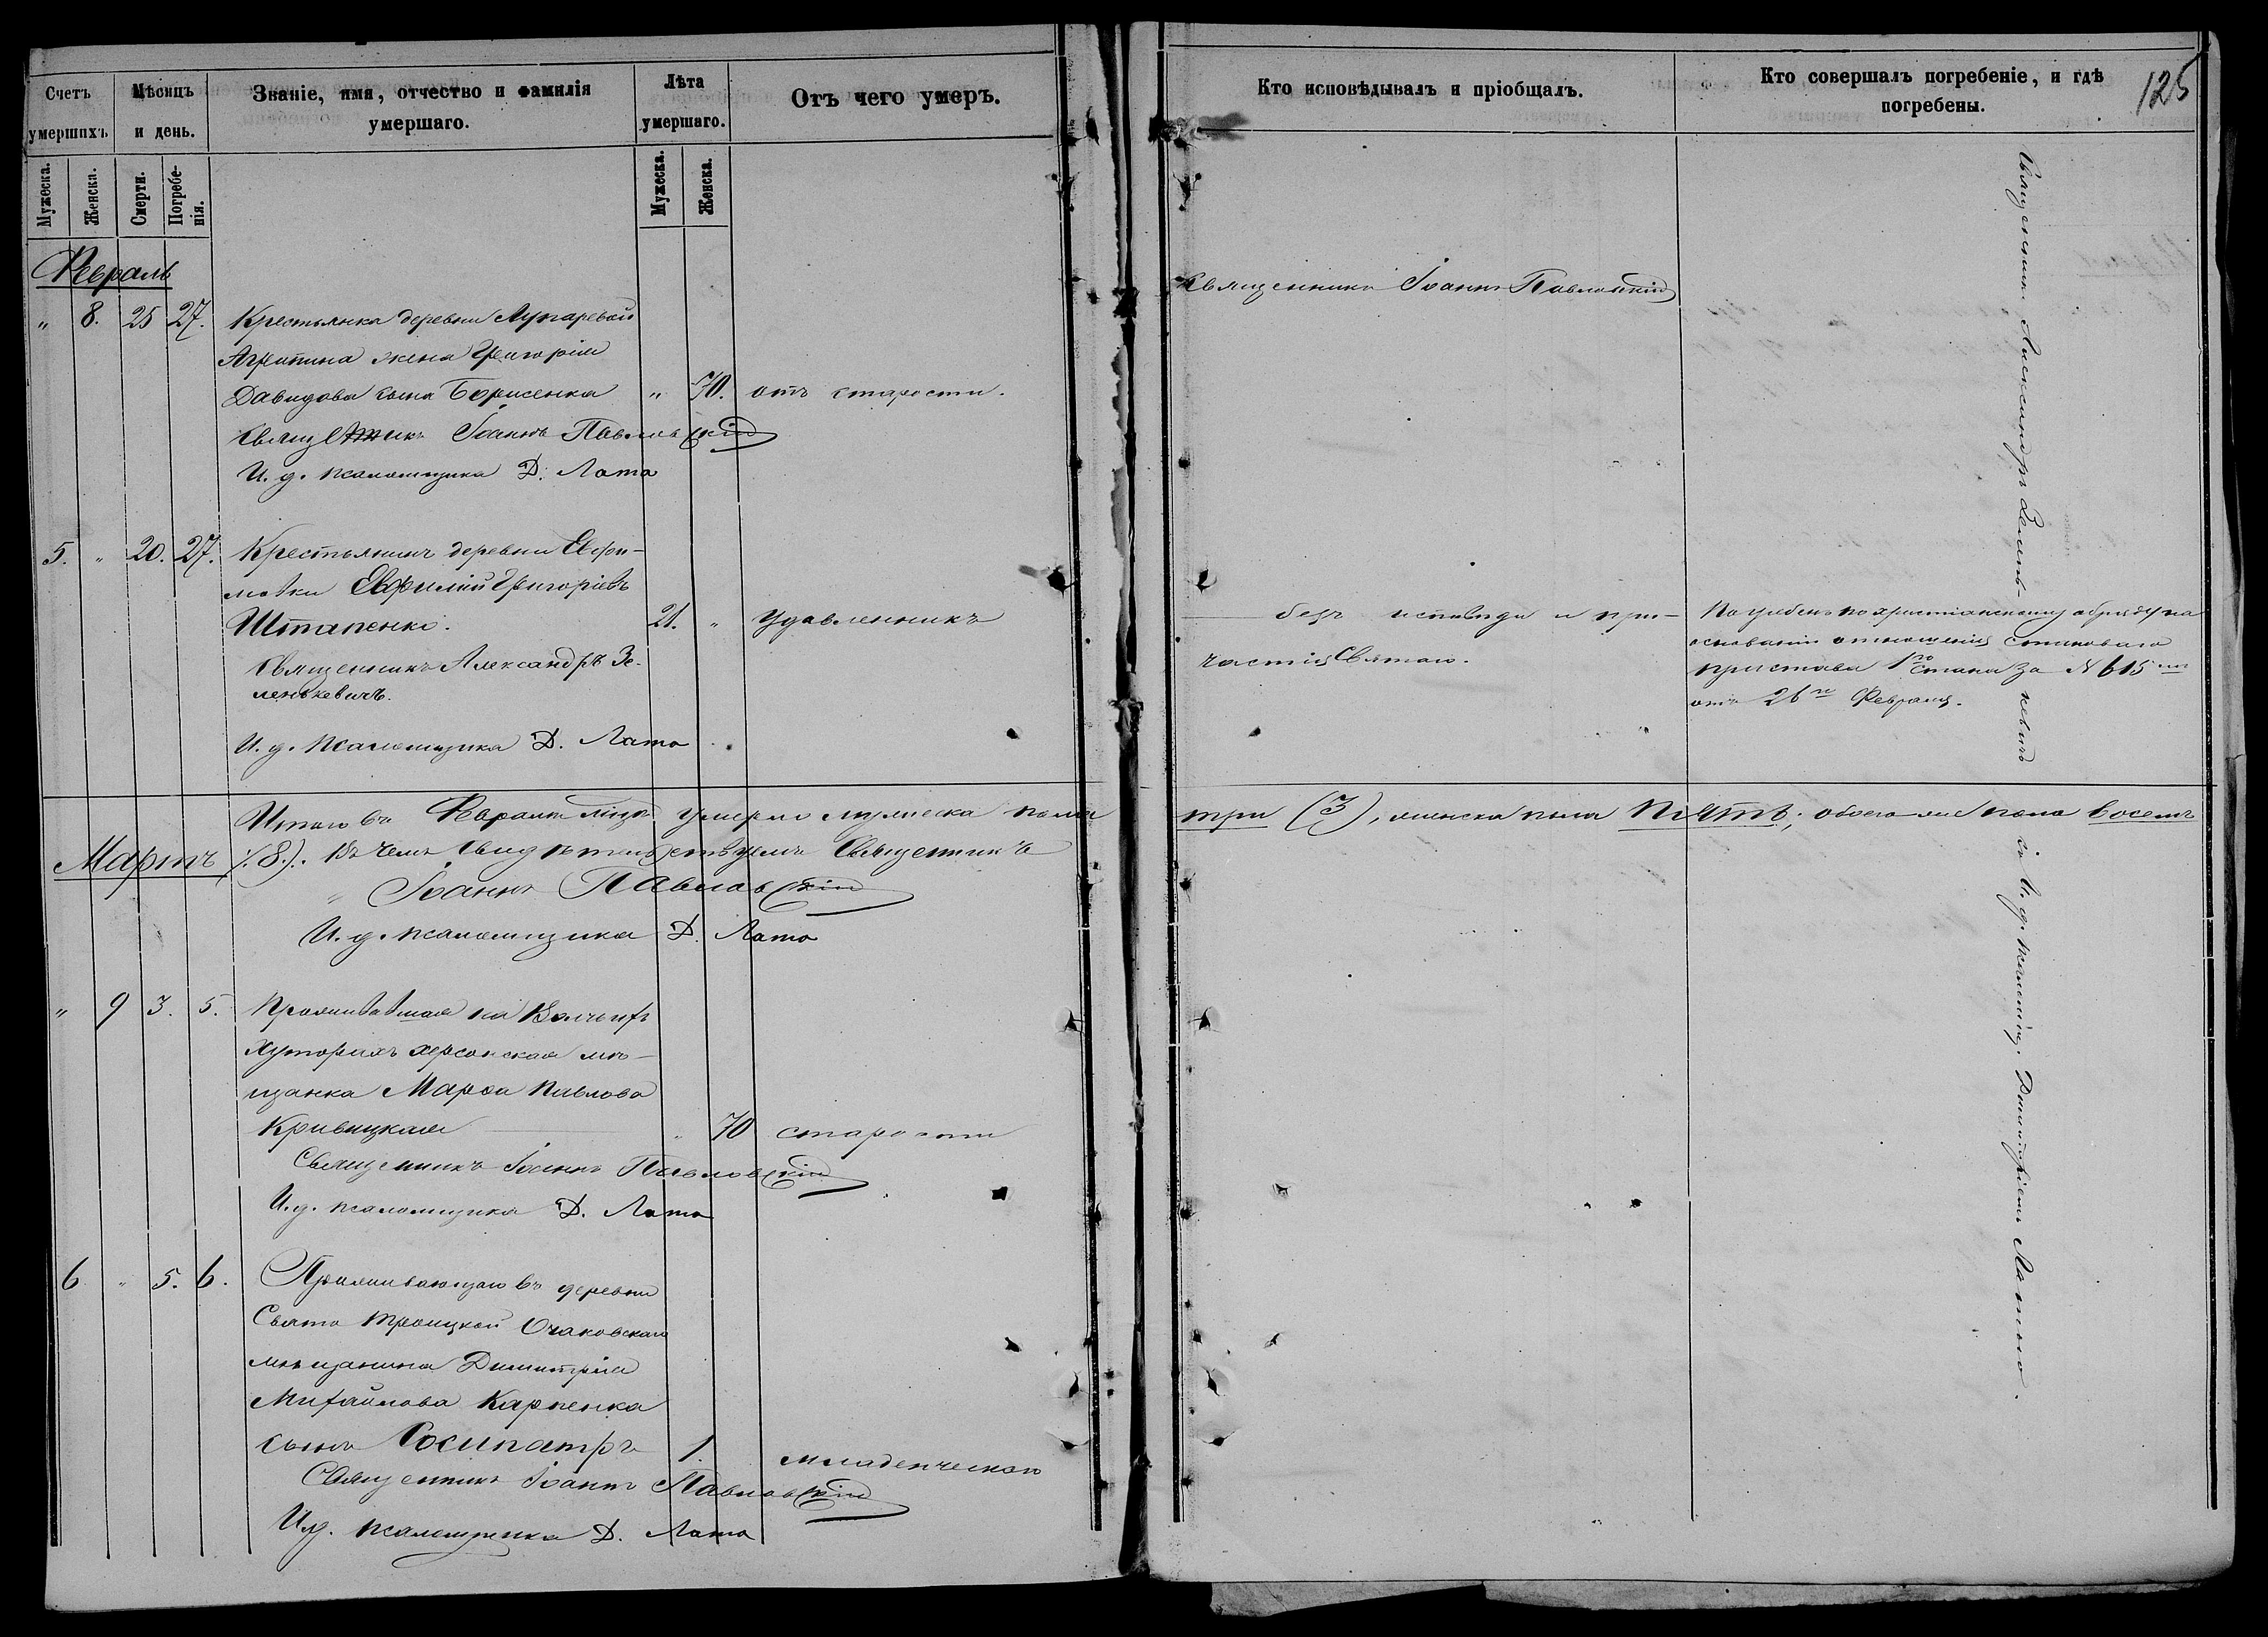 Счетъ умершихъ.
Мѣсяцъ и день.
Званіе, имя, отчество и фамилія умершаго.
Лѣта умершаго.
Отъ чего умеръ.
Мужеска.
Женска.
Смерти.
Погребенія.
Мужеска.
Женска.
Кто исповѣдывалъ и пріобщалъ.
Кто совершалъ погребеніе, и гдѣ погребены.
125
Февраль
" 8. 25 27. Крестьянка деревни Лупаревой
Агрипина жена Григорія
Давидова сына Борисенка " 70. отъ старости.
Священникъ Іоаннъ Павловскій
И. д. псаломщика Д. Лата
Священникъ Іоаннъ Павловскій
5. " 20. 27. Крестьянинъ деревни Ефи-
мовки Евфимій Григоріевъ
Штапенко. 21. " удавленникъ
Священникъ Александръ Зе-
ленкевичъ.
И. д. псаломщика Д. Лата
безъ исповѣди и при-
частія Святаго.
Погребенъ по христіанскому обряду на
основаніи отношенія становаго
пристава 1го стана за № 615мъ
отъ 26го Февраля.
Итого въ Февралѣ мѣсяцѣ умерло мужеска пола три (3), женска пола пять; обоего же пола восемь
Мартъ (8). Въ чемъ свидѣтельствуемъ Священникъ
Іоаннъ Павловскій
И. д. псаломщика Д. Лата
" 9 3. 5. Проживавшая на Волчьихъ
Хуторахъ херсонская мѣ-
щанка Марѳа Павлова
Кривицкая " 70 старости
Священникъ Іоаннъ Павловскій
И. д. псаломщика Д. Лата
6 " 5. 6. Проживающаго въ деревни
Свято Троицкой Очаковскаго
мѣщанина Димитрія
Михайлова Карпенка
сынъ Сосипатръ 1. младенческой
Священникъ Іоаннъ Павловскій
И. д. псаломщика Д. Лата
Священникъ Александръ Зеленкевичъ съ И. д. псаломщ. Димитріемъ Латою.